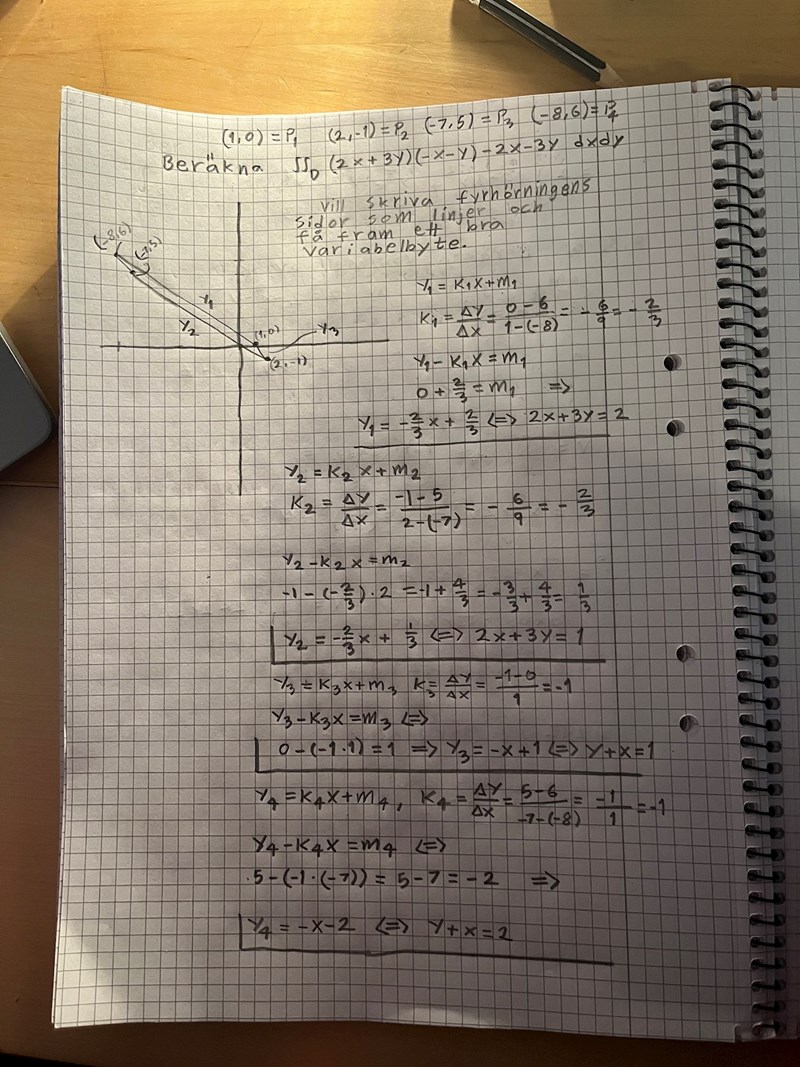 (1,0) = P₁ (2,-1) = P₂ (-7,5) = P₃ (-8,6) = P₄
Beräkna ∬_D (2x+3y)(-x-y)-2x-3y dxdy
Vill skriva fyrhörningens
sidor som linjer och
få fram ett bra
variabelbyte.
(-8,6)
(-7,5)
y₁
y₂
(1,0)
y₃
(2,-1)
y₁ = k₁x+m₁
k₁ = Δy/Δx = (0-6)/(1-(-8)) = -6/9 = -2/3
y₁ - k₁x = m₁
0 + 2/3 = m₁ ⇒
y₁ = -2/3 x + 2/3 ⇔ 2x+3y = 2
y₂ = k₂x+m₂
k₂ = Δy/Δx = (-1-5)/(2-(-7)) = -6/9 = -2/3
y₂ - k₂x = m₂
-1-(-2/3)·2 = -1+4/3 = -3/3+4/3 = 1/3
y₂ = -2/3 x + 1/3 ⇔ 2x+3y = 1
y₃ = k₃x+m₃ k₃ = Δy/Δx = (-1-0)/1 = -1
y₃-k₃x = m₃ ⇔
0-(-1·1) = 1 ⇒ y₃ = -x+1 ⇔ y+x = 1
y₄ = k₄x+m₄, k₄ = Δy/Δx = (5-6)/(-7-(-8)) = -1/1 = -1
y₄-k₄x = m₄ ⇔
5-(-1·(-7)) = 5-7 = -2 ⇒
y₄ = -x-2 ⇔ y+x = 2